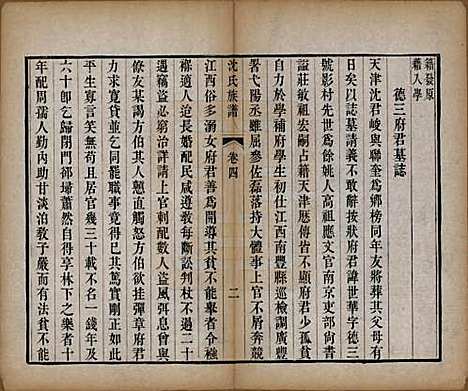 籍發原
籍入學
德三府君墓誌
天津沈君峻與聯奎爲鄉榜同年友將葬其父母有
日矣以誌墓請義不敢辭按狀府君諱世華字德三
號影村先世爲餘姚人高祖應文官南京吏部尚書
諡莊敏祖宏嗣占籍天津傳皆不顯府君少孤貧
自力於學補府學生初仕江西南豐縣巡檢調廣豐
署弋陽丞雖屈參佐磊落持大體事上官不屑奔競
沈氏族譜
卷四
二
江西俗多溺女府君善爲開導其貧不能舉者分祿
褓適人迨長婚配民咸遵教每斷訟判杖不過二十
遇竊盜必窮治詳請上司刺配數人盜風弭息時有
僚友某謁方伯其人戇直觸怒欲挂彈章府君
力實竟得同罷職事竟不以告其人
平生寡言笑居官幾三十載不名一錢年及
六十卽乞歸閉門卻埽蕭然自得享林下之樂者十
年配周孺人勤內助甘淡泊教子嚴而有法貧不能